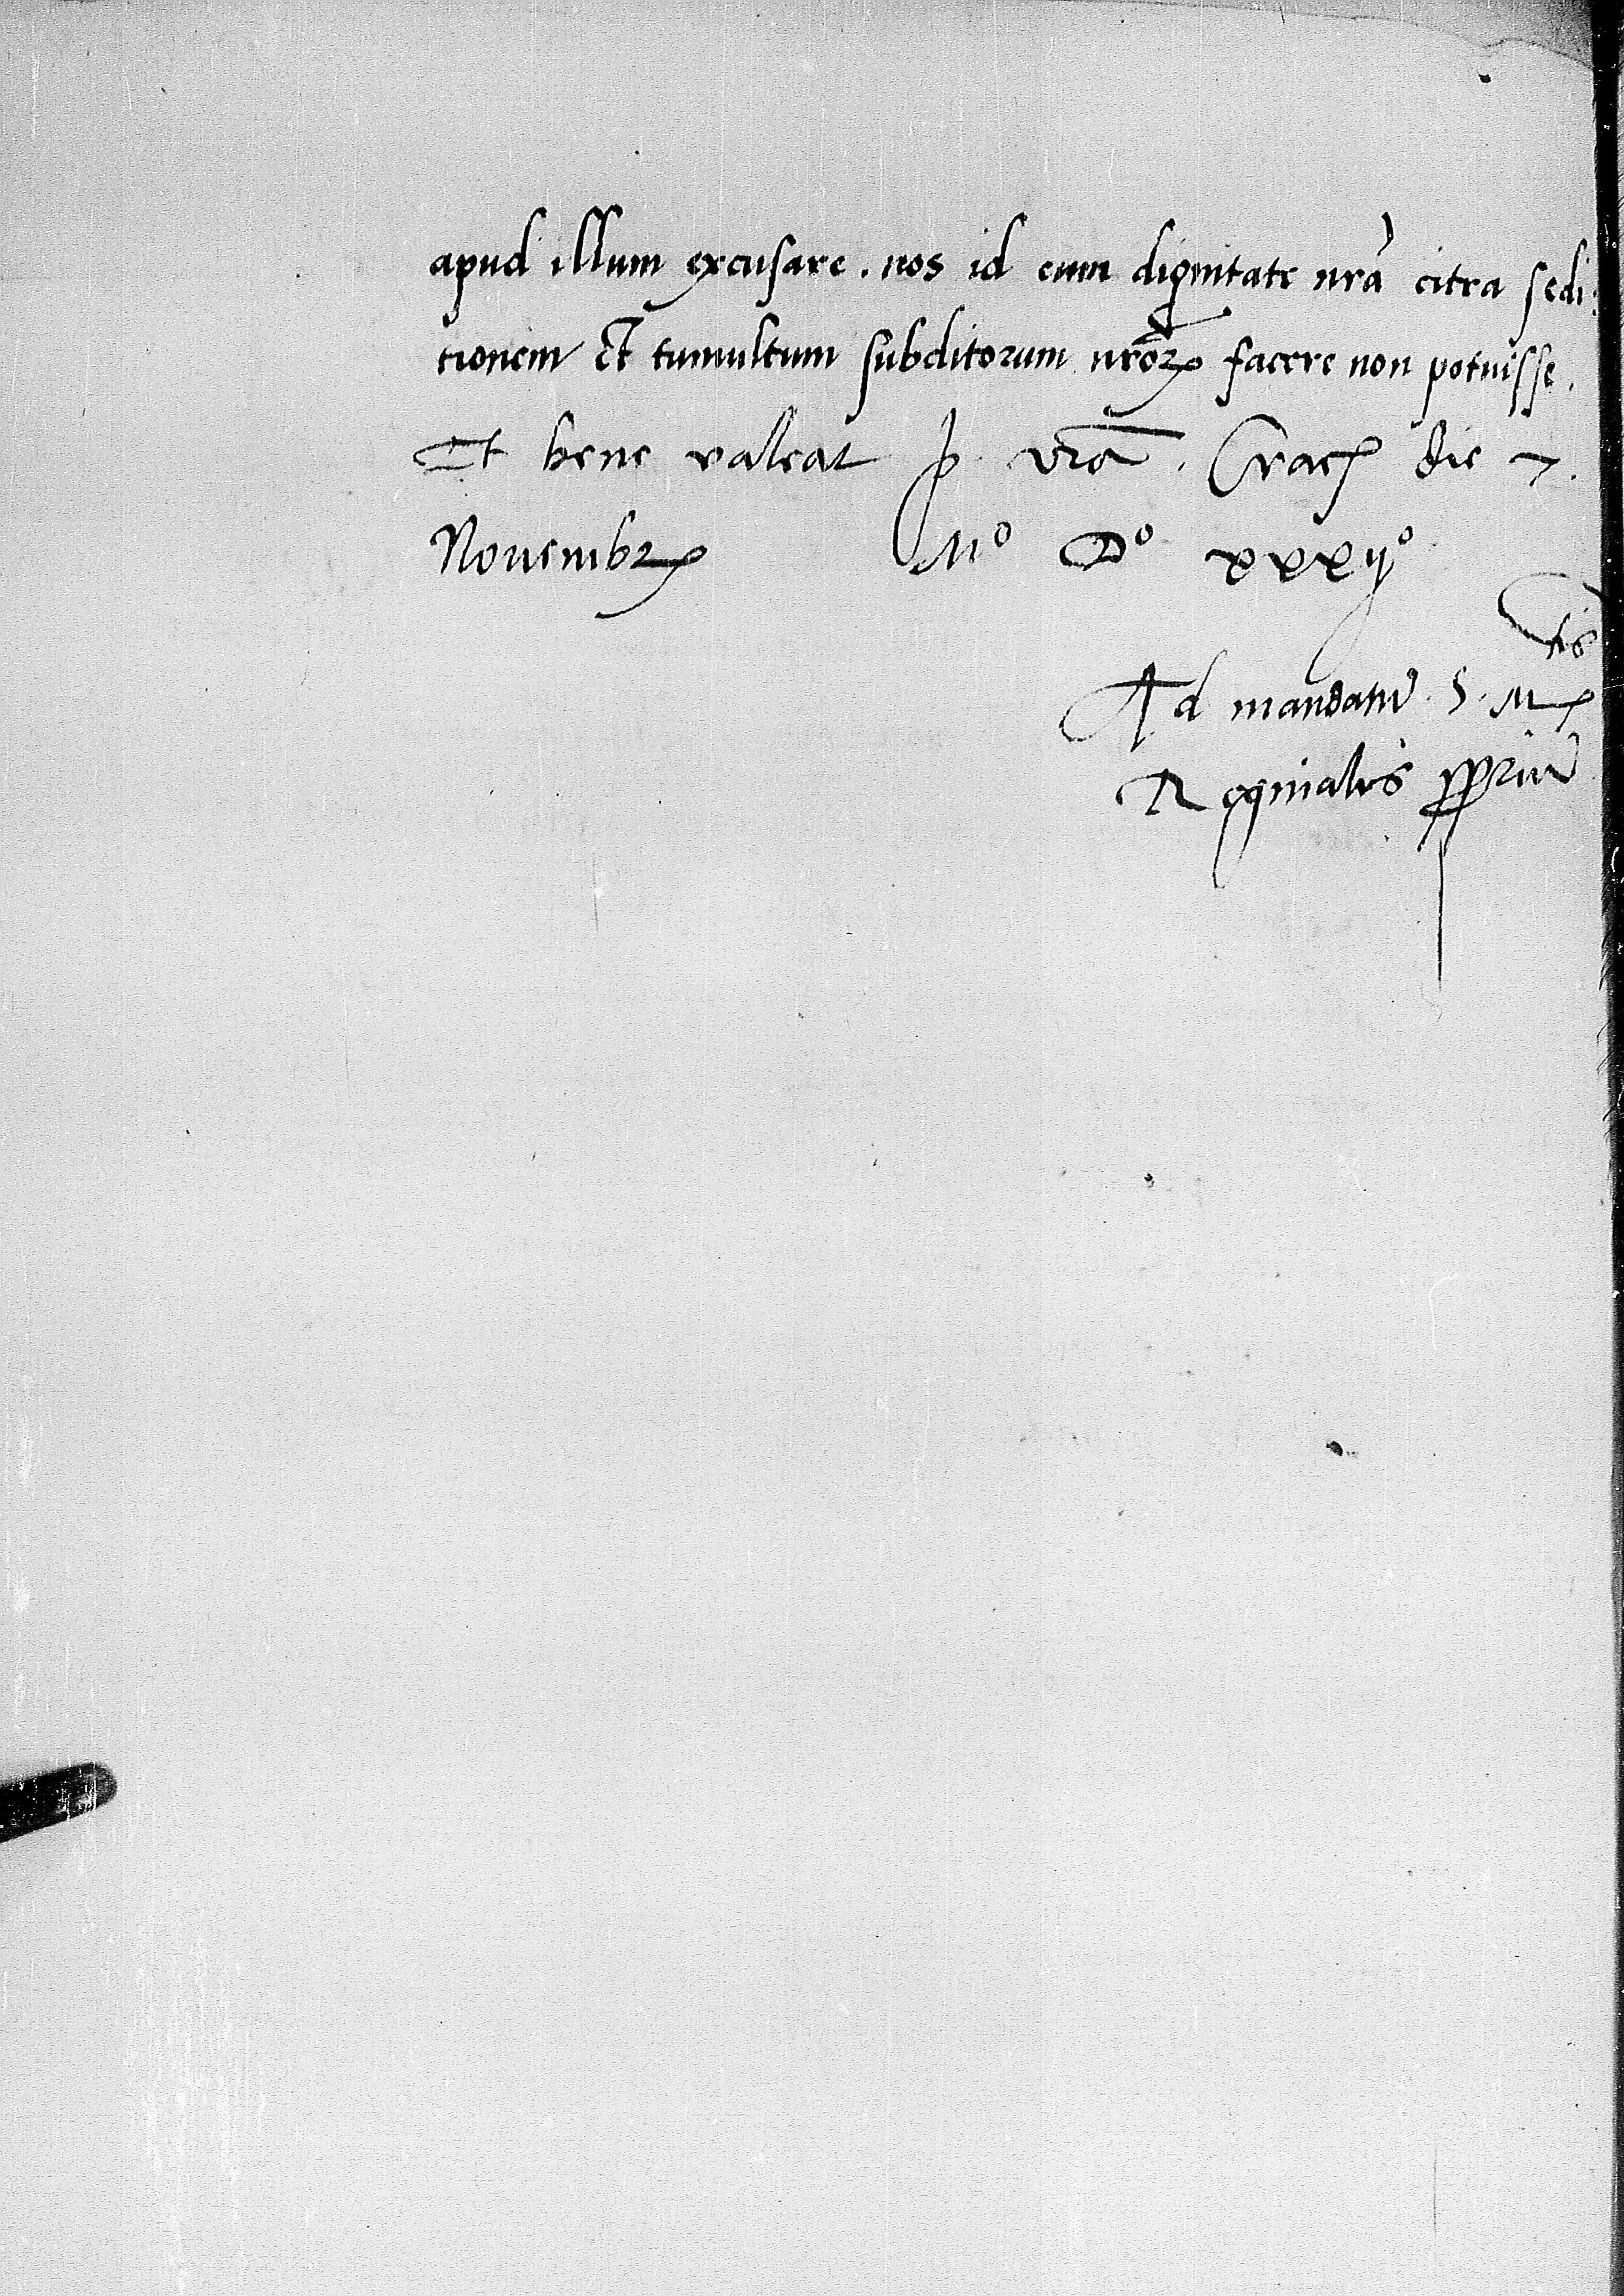 apud illum excusare. nos id cum dignitate nrã citra sedi:
tionem et tumultum subditorum nrõꝝ facere non potuisse.
Et bene valeat P. vrã. Crac̄ die 7.
Novembrꝭ M° D° xxxij°
Ad mandatū S. M tis
Reginalis ꝓpriū